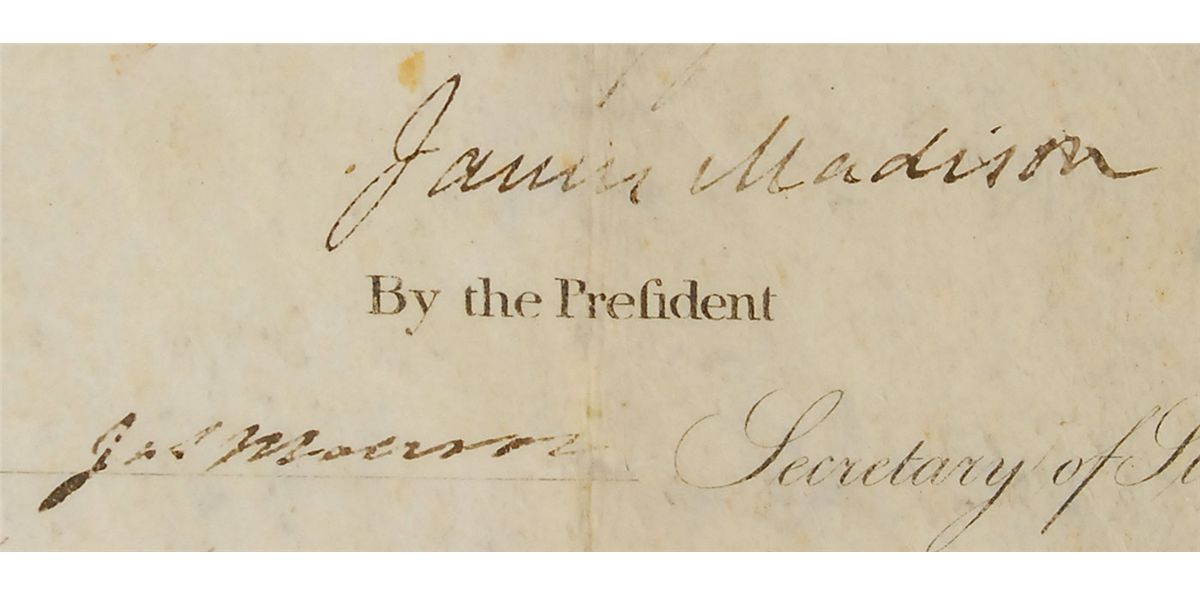 James Madison
By the Preſident
Jaˢ Monroe Secretary of St